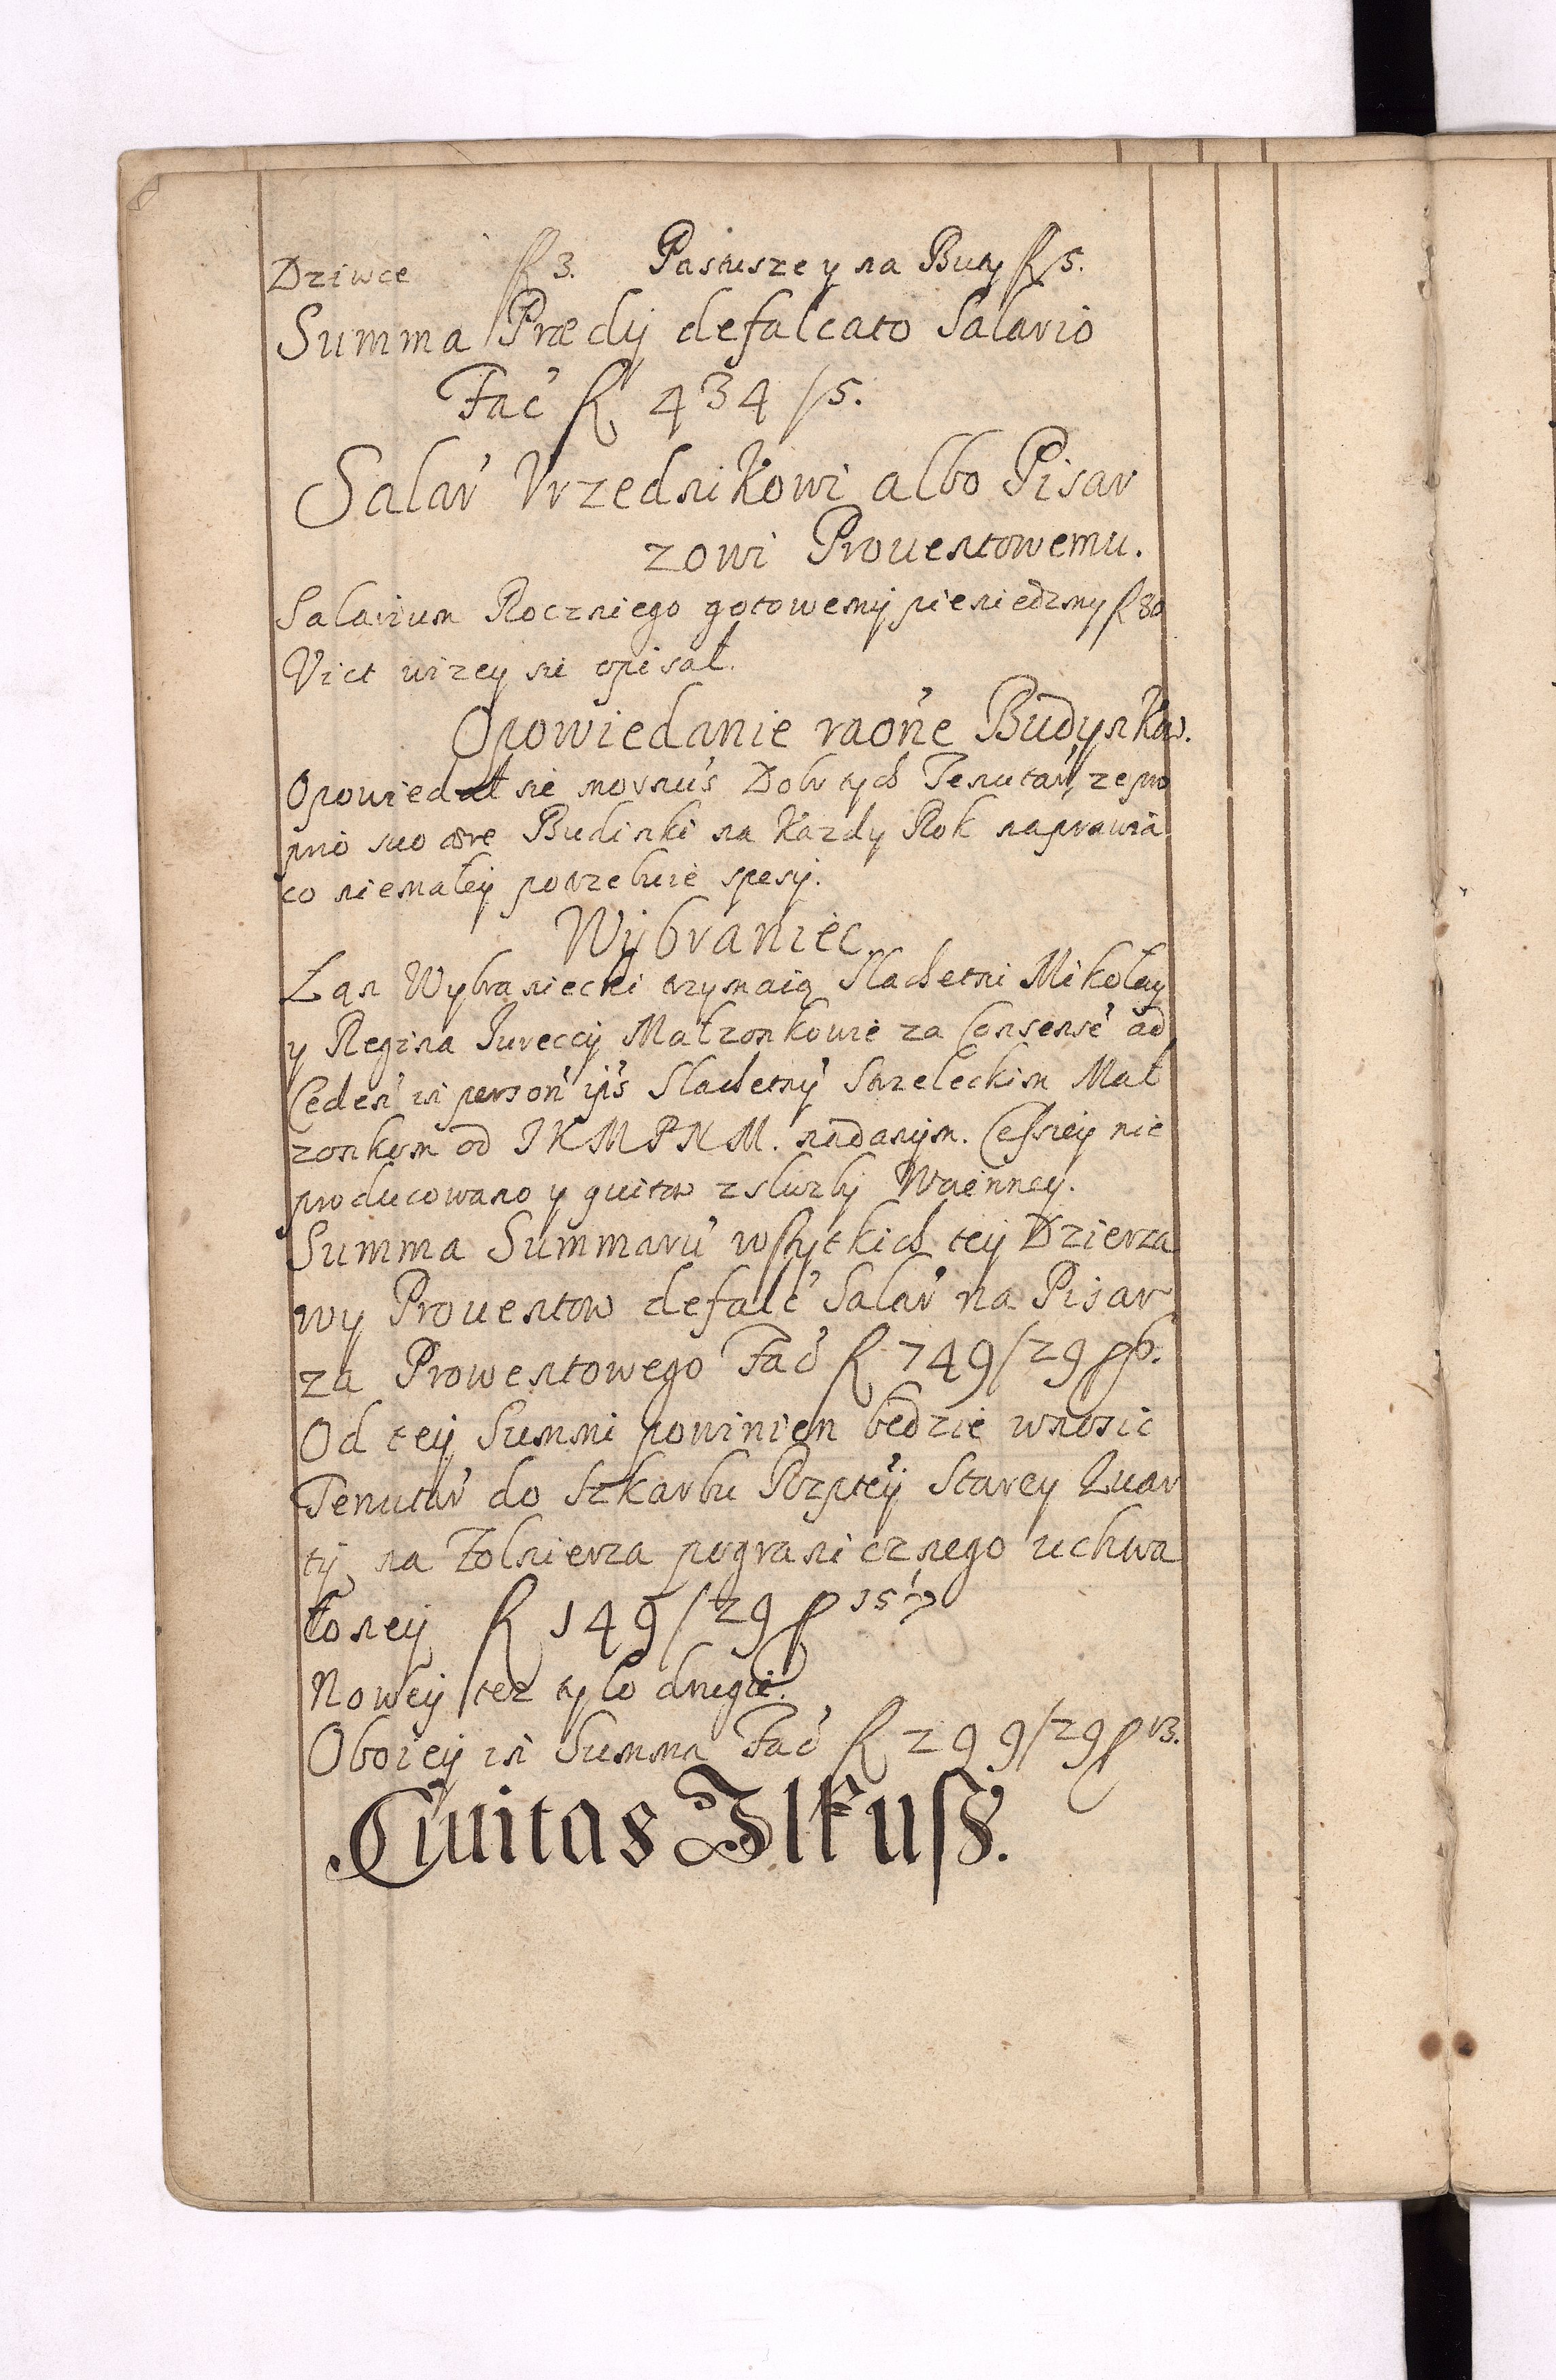 Dziwce fl 3. Pastusze y na Buty fl 5.
Summa Prædij defalcato Salario
Fac' fl 434/5.
Salar' Vrzednikowi albo Pisar
zowi Prouentowemu.
Salarium Roczniego gotowemy pieniedzmy fl 80
Vict wizey sie opisał.
Opowiedanie raõne Budynkow.
Opowiedał sie mornus Dobr tych Tenutar, ze pro
prio suo ære Budinki na Kazdy Rok naprawia
co niemałey potrzebuie spesy.
Wybraniec.
Łan Wybraniecki trzymaią Slachetni Mikołay
y Regina Jureccy Małzonkowie za Consense' ad
Ceden' in person' ips' Slachetny' Strzeleckim Mał
zonkom od JKMPNM. nadanym. Cessiey nie
producowano y quitow z sluzby Woienney.
Summa Summaru' wszytkich tey Dzierza
wy Prouentow defalc' Salar' na Pisar
za Prowentowego Fac' fl 749/29
Od tey Summi powinien będzie wnosic
Tenutar' do Szkarbu Rzptey Starey Quar
ty na Zołnierza pogranicznego uchwa
loney fl 149/29 15
Nowey tez tylo drugie.
Oboiey in Summa Fac' fl 299/29
Ciuitas Ilkusz.